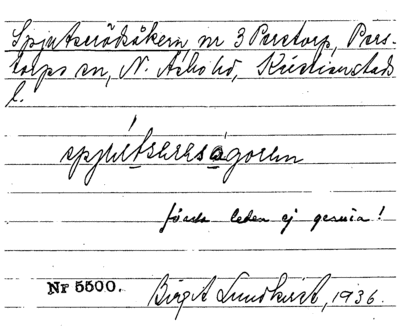 Spjutserödsåkern, nr 3 Perstorp, Pers-
torps sn, N. Åsbo hd, Kristianstads
l.
första leden ej genuin!
Nr 5500.
Birgit Lundkvist, 1936.